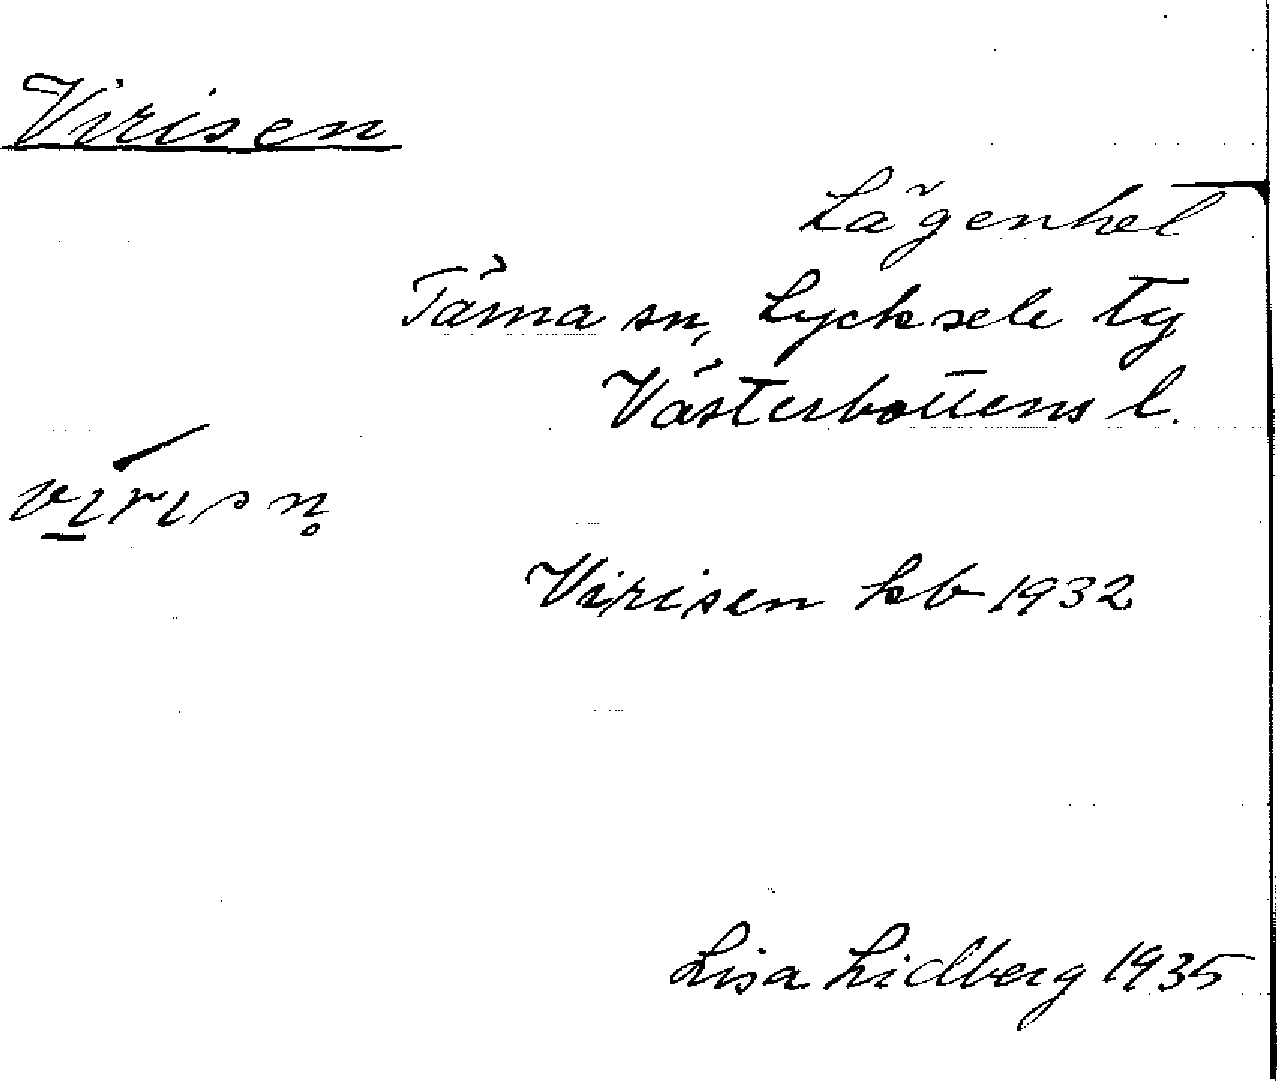 Virisen
Lägenhet
Tärna sn, Lycksele tg
Västerbottens l.
vírisn̥
Virisen kb 1932
Lisa Lidberg 1935